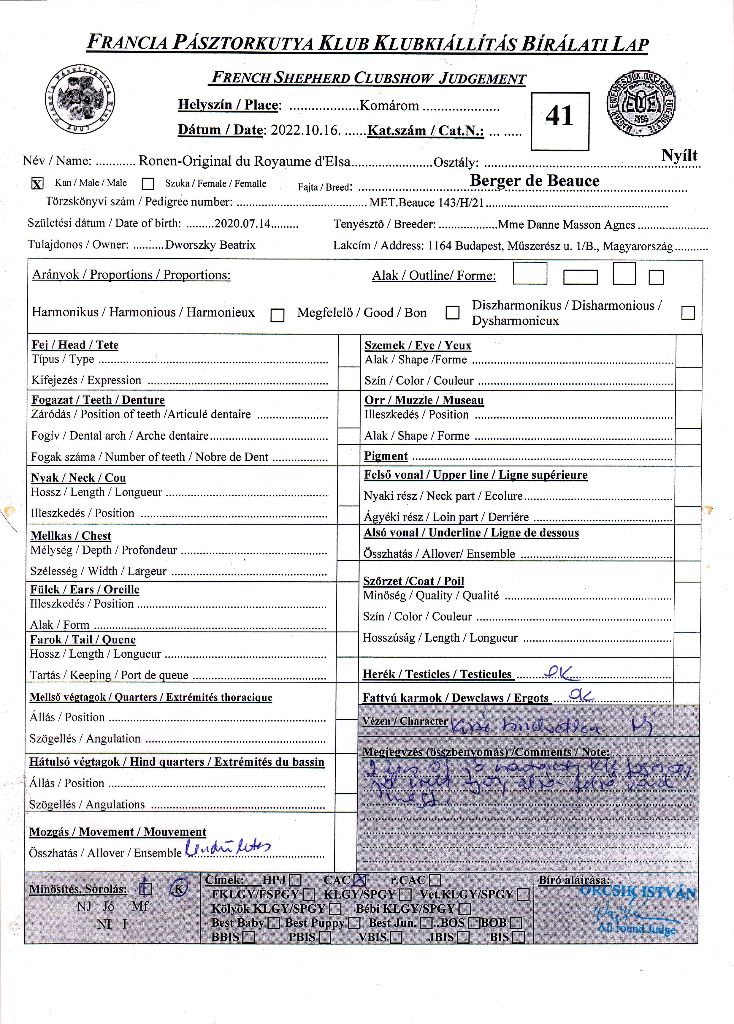 FRANCIA PÁSZTORKUTYA KLUB KLUBKIÁLLÍTÁS BÍRÁLATI LAP
FRENCH SHEPHERD CLUBSHOW JUDGEMENT
Helyszín / Place: ..................Komárom ....................
41
Dátum / Date: 2022.10.16. ......Kat.szám / Cat.N.: ... ......
Név / Name: ........... Ronen-Original du Royaume d'Elsa......................Osztály: ............ Nyílt
X Kan / Male / Male Szuka / Female / Femalle Fajta / Breed: ............ Berger de Beauce
Törzskönyvi szám / Pedigree number: ............ MET.Beauce 143/H/21............
Születési dátum / Date of birth: .........2020.07.14......... Tenyésztő / Breeder: ............Mme Danne Masson Agnes............
Tulajdonos / Owner: .........Dworszky Beatrix Lakcím / Address: 1164 Budapest, Műszerész u. 1/B., Magyarország...........
Arányok / Proportions / Proportions: Alak / Outline/ Forme:
Harmonikus / Harmonious / Harmonieux Megfelelő / Good / Bon Diszharmonikus / Disharmonious / Dysharmonieux
Fej / Head / Tete
Típus / Type
Kifejezés / Expression
Fogazat / Teeth / Denture
Záródás / Position of teeth /Articulé dentaire
Fogív / Dental arch / Arche dentaire
Fogak száma / Number of teeth / Nobre de Dent
Nyak / Neck / Cou
Hossz / Length / Longueur
Illeszkedés / Position
Mellkas / Chest
Mélység / Depth / Profondeur
Szélesség / Width / Largeur
Fülek / Ears / Oreille
Illeszkedés / Position
Alak / Form
Farok / Tail / Quene
Hossz / Length / Longueur
Tartás / Keeping / Port de queue
Mellső végtagok / Quarters / Extrémités thoracique
Állás / Position
Szögellés / Angulation
Hátulsó végtagok / Hind quarters / Extrémités du bassin
Állás / Position
Szögellés / Angulations
Mozgás / Movement / Mouvement
Összhatás / Allover / Ensemble lendületes
Szemek / Eye / Yeux
Alak / Shape /Forme
Szín / Color / Couleur
Orr / Muzzle / Museau
Illeszkedés / Position
Alak / Shape / Forme
Pigment
Felső vonal / Upper line / Ligne supérieure
Nyaki rész / Neck part / Ecolure
Ágyéki rész / Loin part / Derriére
Alsó vonal / Underline / Ligne de dessous
Összhatás / Allover/ Ensemble
Szőrzet /Coat / Poil
Minőség / Quality / Qualité
Szín / Color / Couleur
Hosszúság / Length / Longueur
Herék / Testicles / Testicules OK
Fattyú karmok / Dewclaws / Ergots OK
Vézen / Character
Megjegyzés (összbenyomás) /Comments / Note:
Minősítés, Sorolás: 1 K
NJ Jó Mf
NI I
Címek: HPJ CAC X r.CAC
FKLGY/FSPGY KLGY/SPGY Vet.KLGY/SPGY
Kölyök KLGY/SPGY Bébi KLGY/SPGY
Best Baby Best Puppy Best Jun. BOS BOB
BBIS PBIS VBIS JBIS BIS
Bíró aláírása:
ORCSIK ISTVÁN
All round Judge